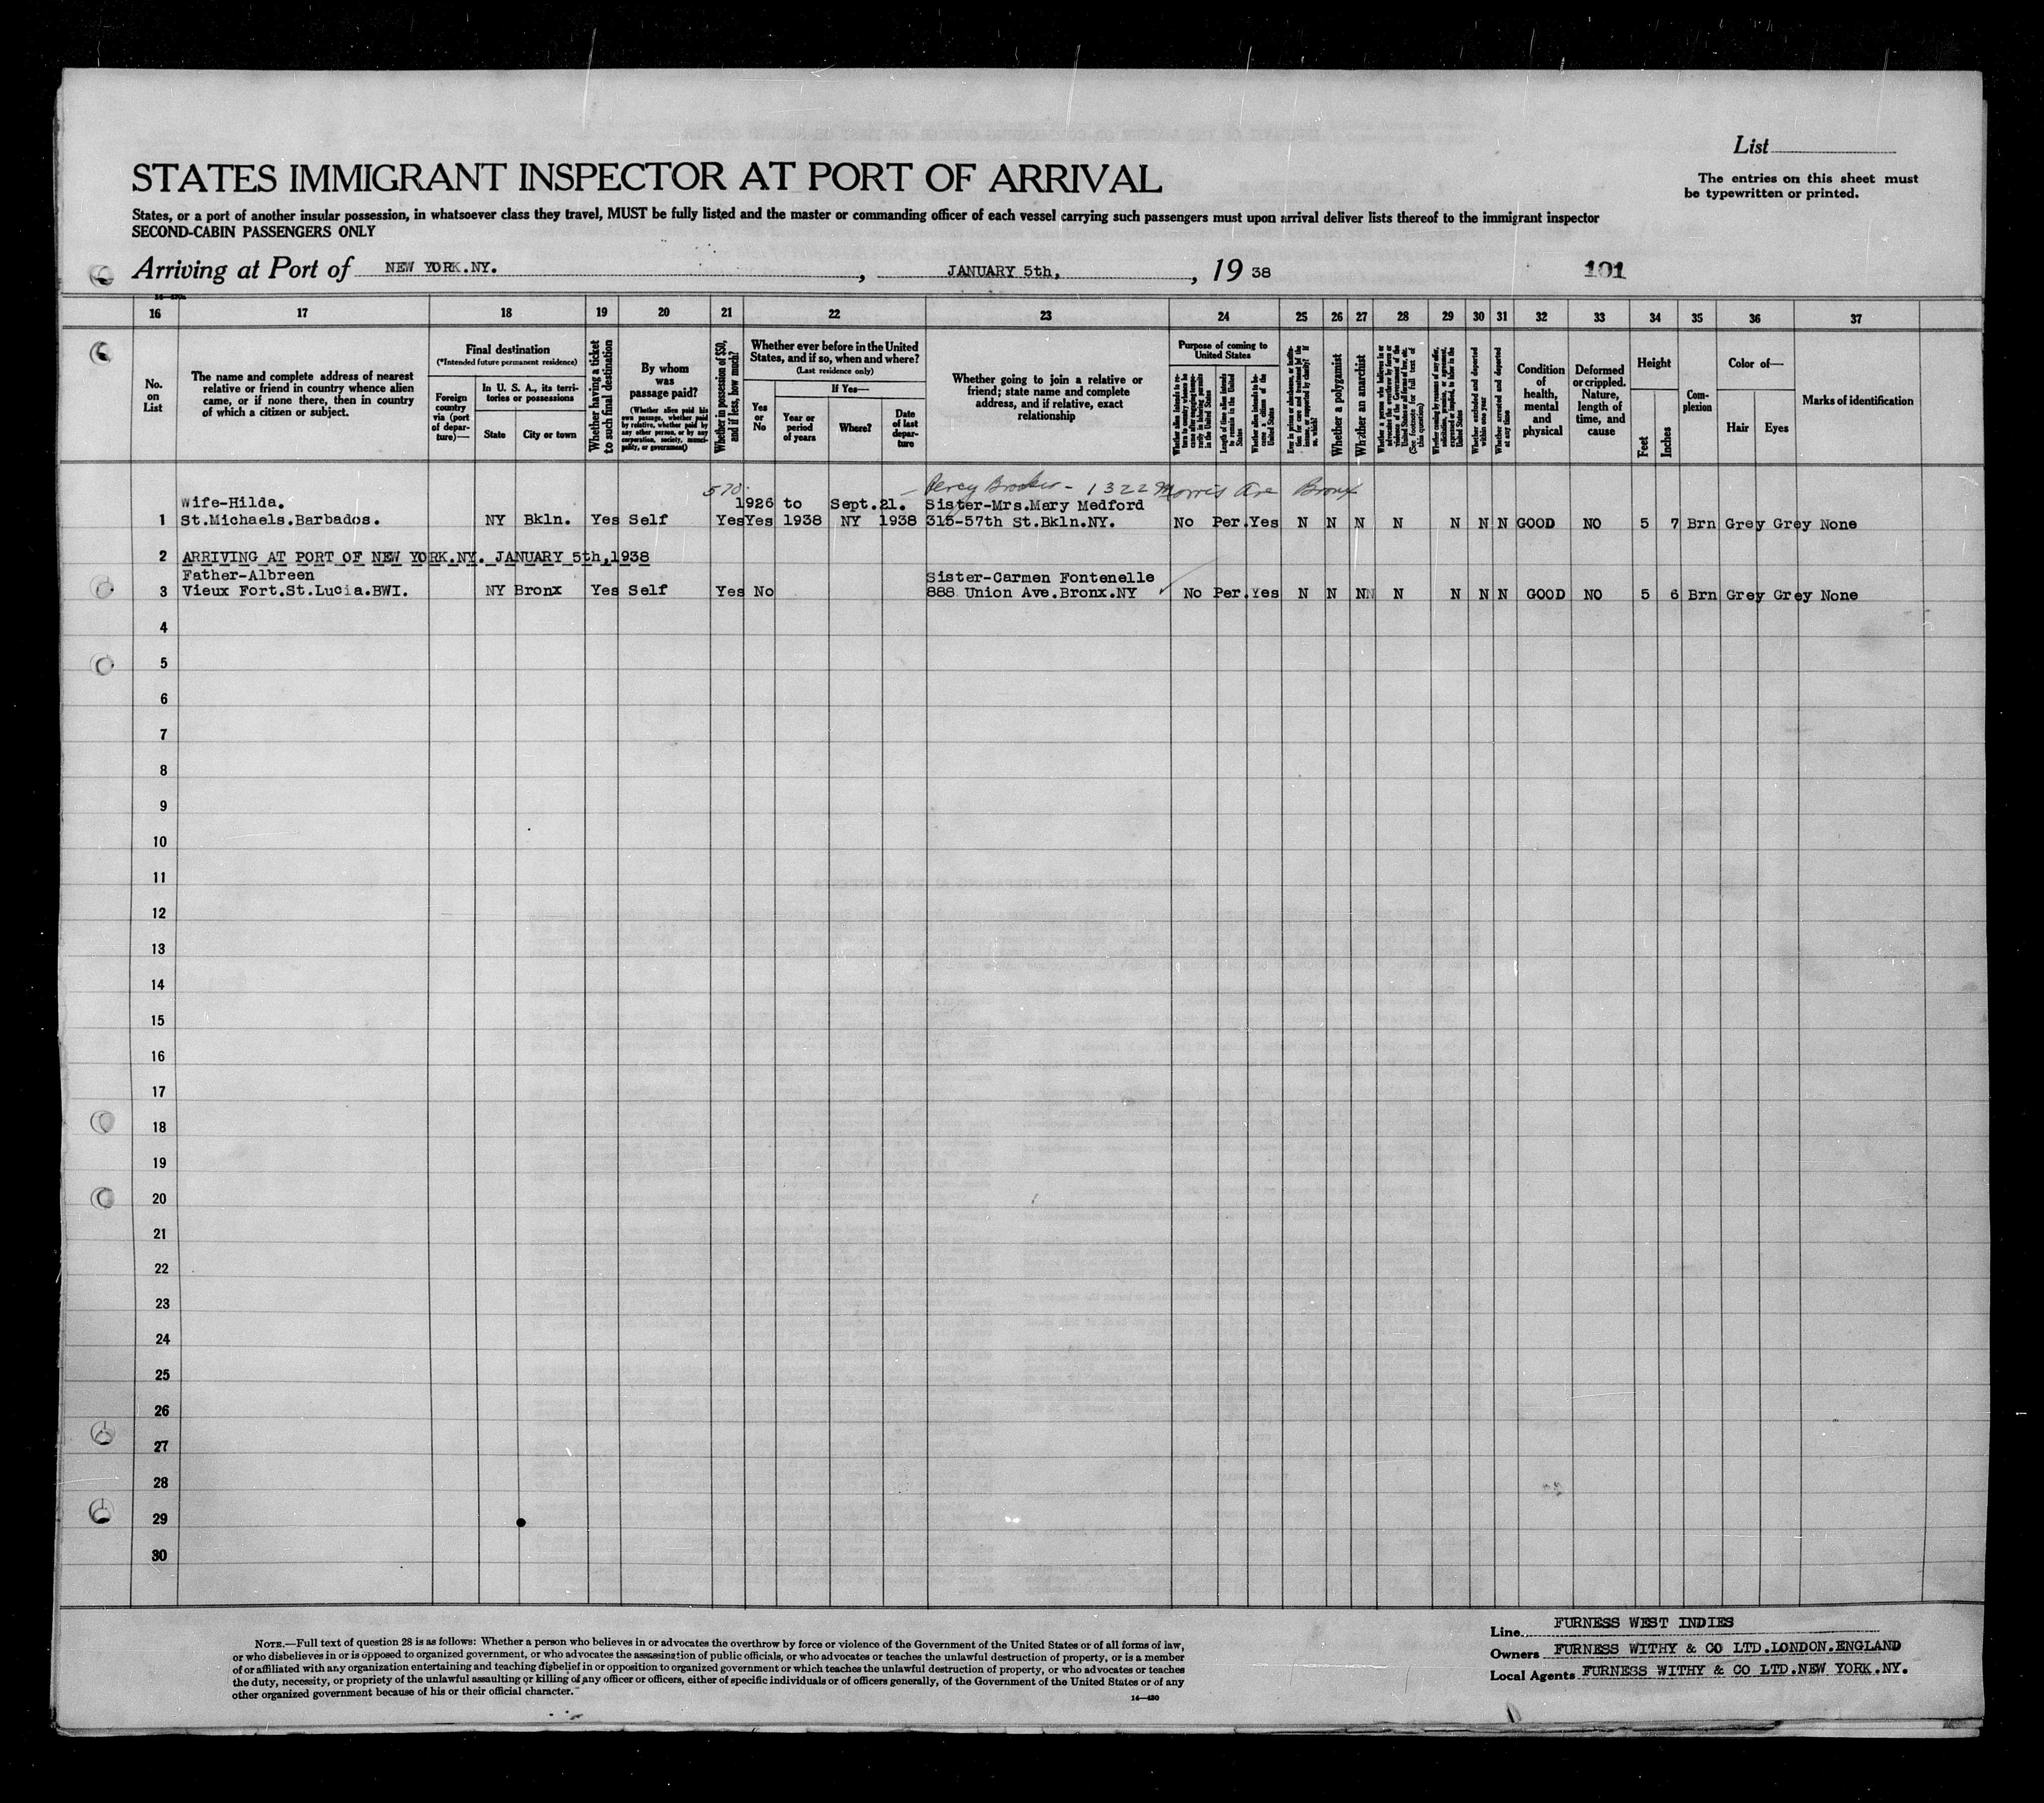 List
The entries on this sheet must
be typewritten or printed.
STATES IMMIGRANT INSPECTOR AT PORT OF ARRIVAL
States, or a port of another insular possession, in whatsoever class they travel, MUST be fully listed and the master or commanding officer of each vessel carrying such passengers must upon arrival deliver lists thereof to the immigrant inspector
SECOND-CABIN PASSENGERS ONLY
Arriving at Port of NEW YORK.NY. , JANUARY 5th, , 19 38 101
16 17 18 19 20 21 22 23 24 25 26 27 28 29 30 31 32 33 34 35 36 37
No. on List
The name and complete address of nearest
relative or friend in country whence alien
came, or if none there, then in country
of which a citizen or subject.
Final destination
(*Intended future permanent residence)
Foreign country via (port of departure)—
In U. S. A., its territories or possessions
State
City or town
Whether having a ticket to such final destination
By whom was passage paid?
(Whether alien paid his own passage, whether paid by relative, whether paid by any other person, or by any corporation, society, municipality, or government)
Whether in possession of $50, and if less, how much?
Whether ever before in the United
States, and if so, when and where?
(Last residence only)
Yes or No
If Yes—
Year or period of years
Where?
Date of last departure
Whether going to join a relative or
friend; state name and complete
address, and if relative, exact
relationship
Purpose of coming to United States
Whether a polygamist
Whether an anarchist
(See footnote for full text of this question)
Whether excluded and deported within one year
Whether arrested and deported at any time
Condition of health, mental and physical
Deformed or crippled. Nature, length of time, and cause
Height
Feet
Inches
Complexion
Color of—
Hair
Eyes
Marks of identification
570. Percy Brooker - 1322 Morris Ave Bronx
Wife-Hilda. 1926 to Sept.21. Sister-Mrs.Mary Medford
1 St.Michaels.Barbados. NY Bkln. Yes Self Yes Yes 1938 NY 1938 315-57th St.Bkln.NY. No Per. Yes N N N N N N N GOOD NO 5 7 Brn Grey Grey None
2 ARRIVING AT PORT OF NEW YORK.NY. JANUARY 5th,1938
Father-Albreen Sister-Carmen Fontenelle
3 Vieux Fort.St.Lucia.BWI. NY Bronx Yes Self Yes No 888 Union Ave.Bronx.NY No Per. Yes N N NN N N N N GOOD NO 5 6 Brn Grey Grey None
4
5
6
7
8
9
10
11
12
13
14
15
16
17
18
19
20
21
22
23
24
25
26
27
28
29
30
NOTE.—Full text of question 28 is as follows: Whether a person who believes in or advocates the overthrow by force or violence of the Government of the United States or of all forms of law,
or who disbelieves in or is opposed to organized government, or who advocates the assassination of public officials, or who advocates or teaches the unlawful destruction of property, or is a member
of or affiliated with any organization entertaining and teaching disbelief in or opposition to organized government or which teaches the unlawful destruction of property, or who advocates or teaches
the duty, necessity, or propriety of the unlawful assaulting or killing of any officer or officers, either of specific individuals or of officers generally, of the Government of the United States or of any
other organized government because of his or their official character.
14—430
Line FURNESS WEST INDIES
Owners FURNESS WITHY & CO LTD.LONDON.ENGLAND
Local Agents FURNESS WITHY & CO LTD.NEW YORK.NY.